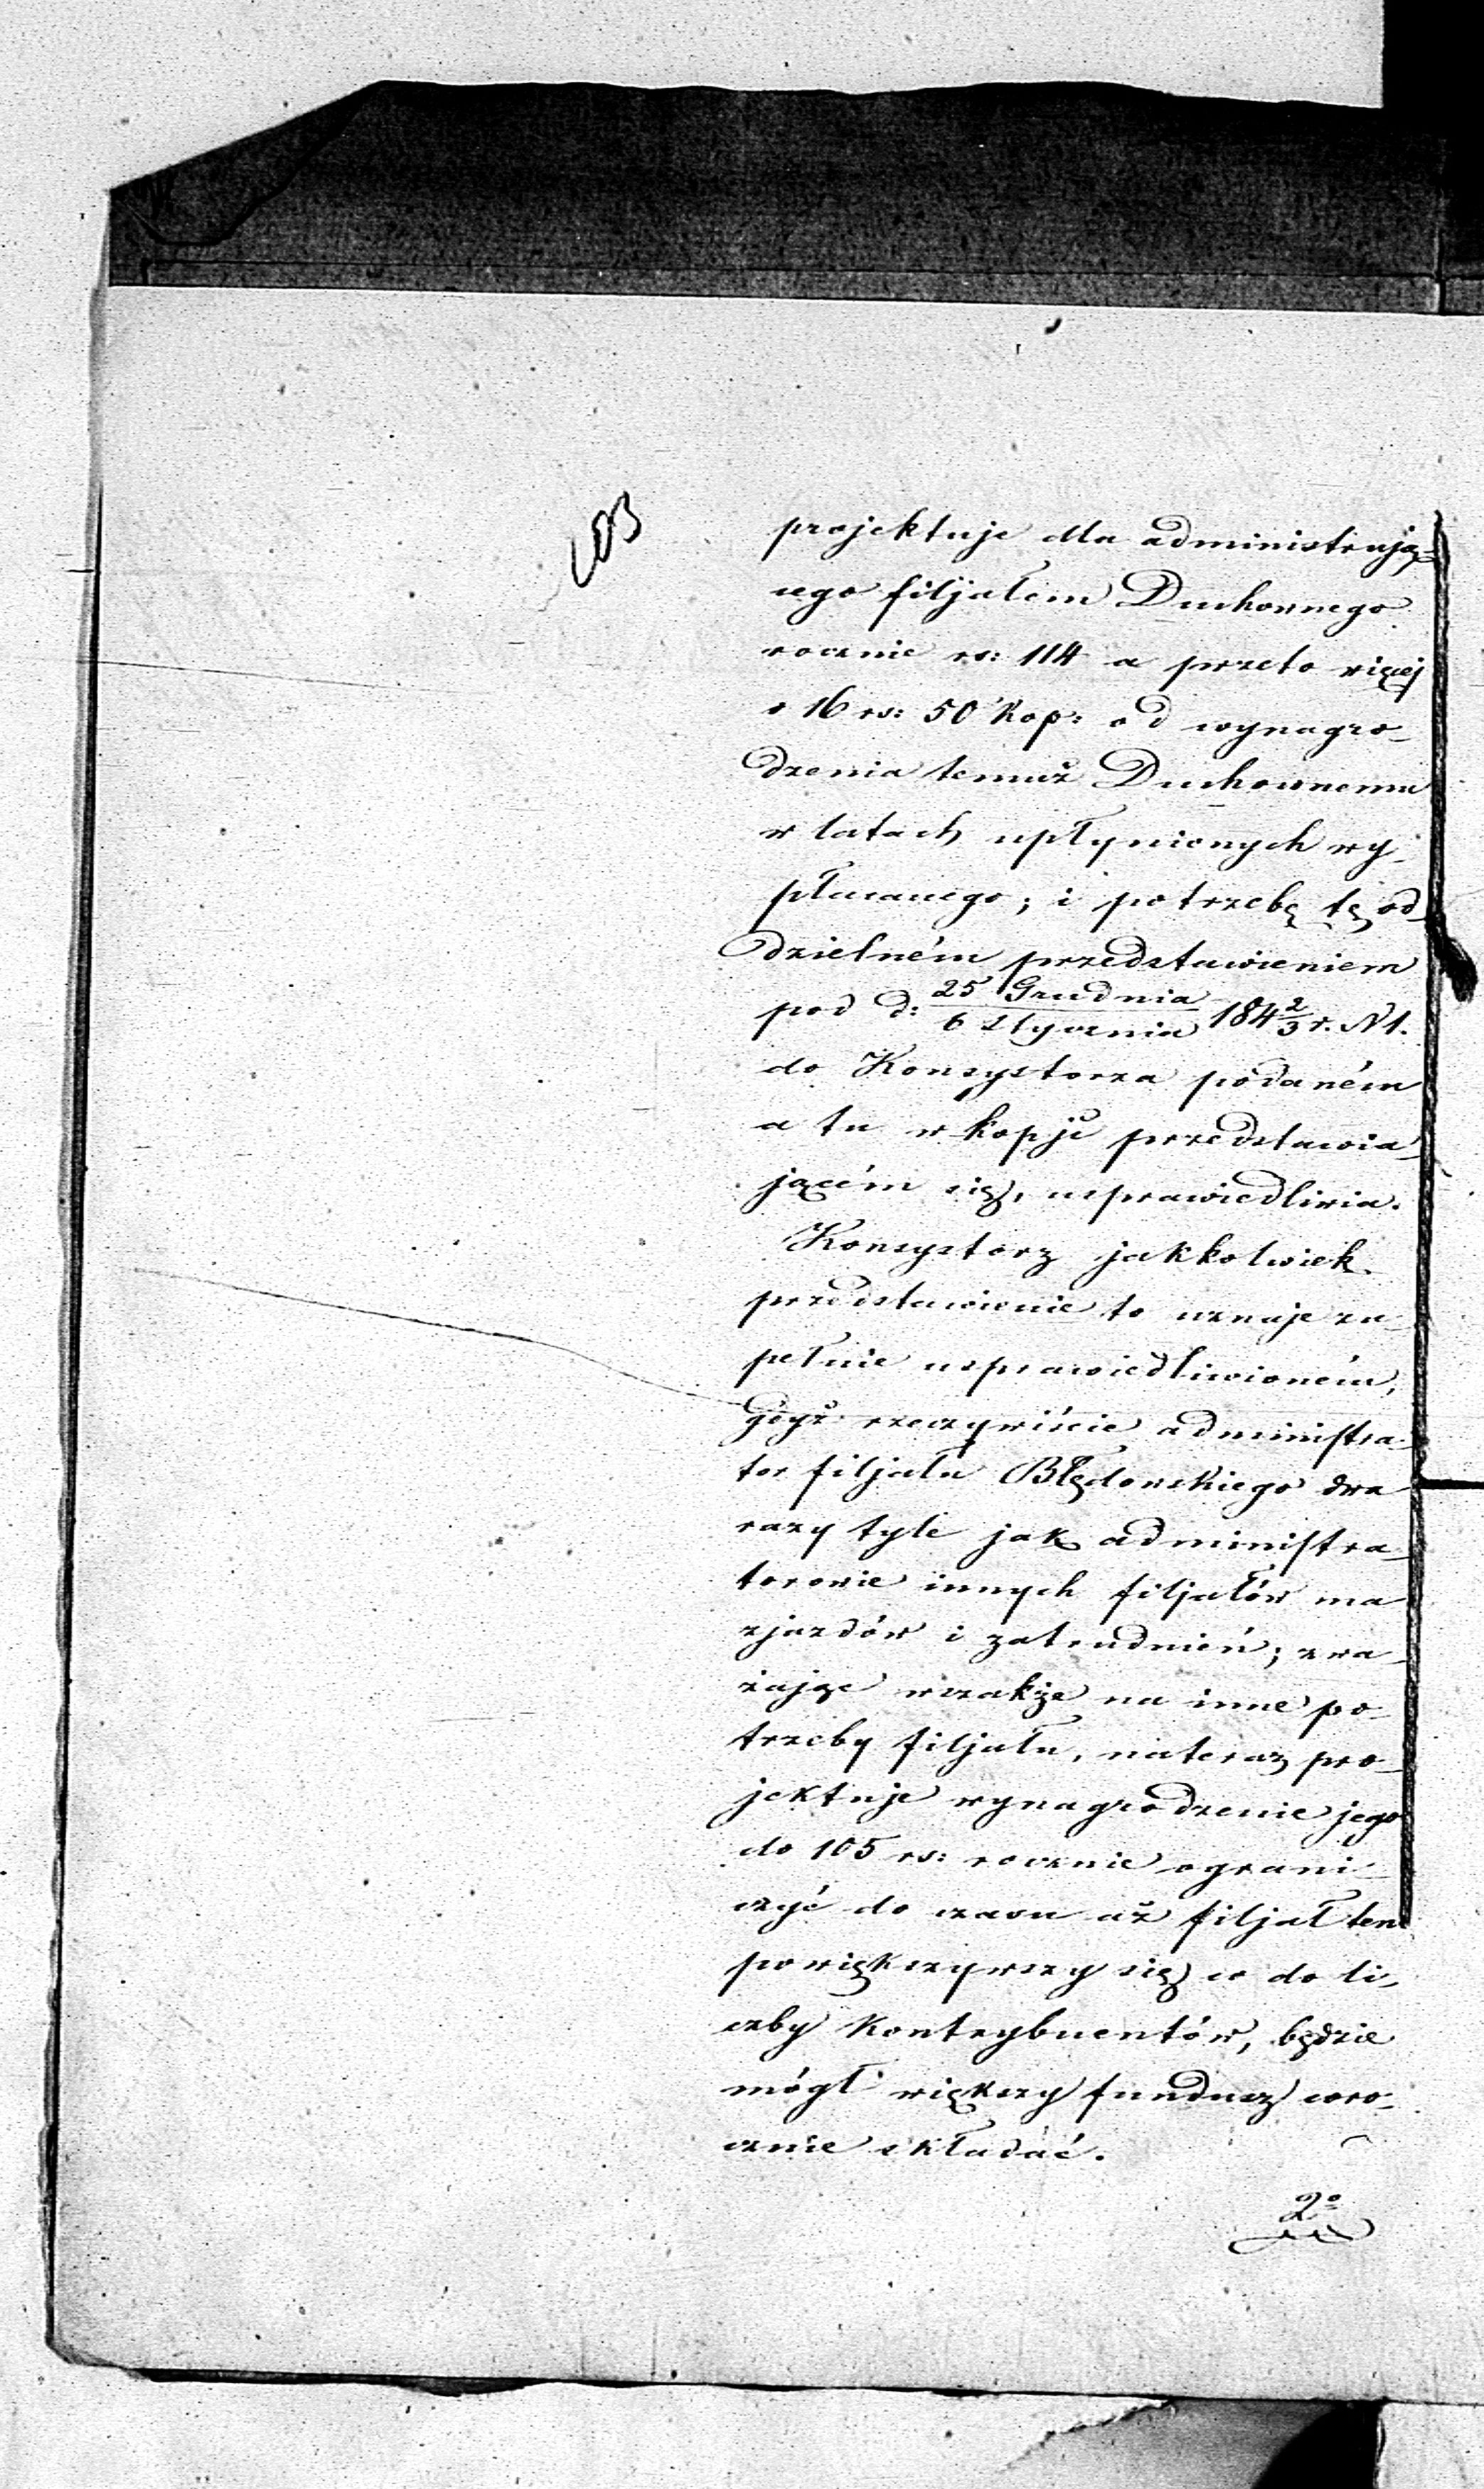 103
projektuje dla administrują-
cego filjałem Duchownego
rocznie rs: 114 a przeto więcej
o 16 rs: 50 kop: od wynagro-
dzenia temuż Duchownemu
w latach upłynionych wy-
płacanego; i potrzebę tę od-
dzielném przedstawieniem
pod d: 25 Grudnia / 6 Stycznia 184 2/3 r. N 1.
do Konsystorza podaném
a tu w kopji przedstawia-
jącém się, usprawiedliwia.
Konsystorz jakkolwiek
przedstawienie to uznaje zu-
pełnie usprawiedliwioném,
gdyż rzeczywiście administra-
tor filjału Błędowskiego dwa
razy tyle jak administra-
torowie innych filjałów ma
zjazdów i zatrudnień; zwa-
żając wszakże na inne po-
trzeby filjału, nateraz pro-
jektuje wynagrodzenie jego
do 105 rs: rocznie ograni-
czyć do czasu aż filjał ten
powiększywszy się co do li-
czby kontrybuentów, będzie
mógł większy fundusz coro-
cznie składać.
2º